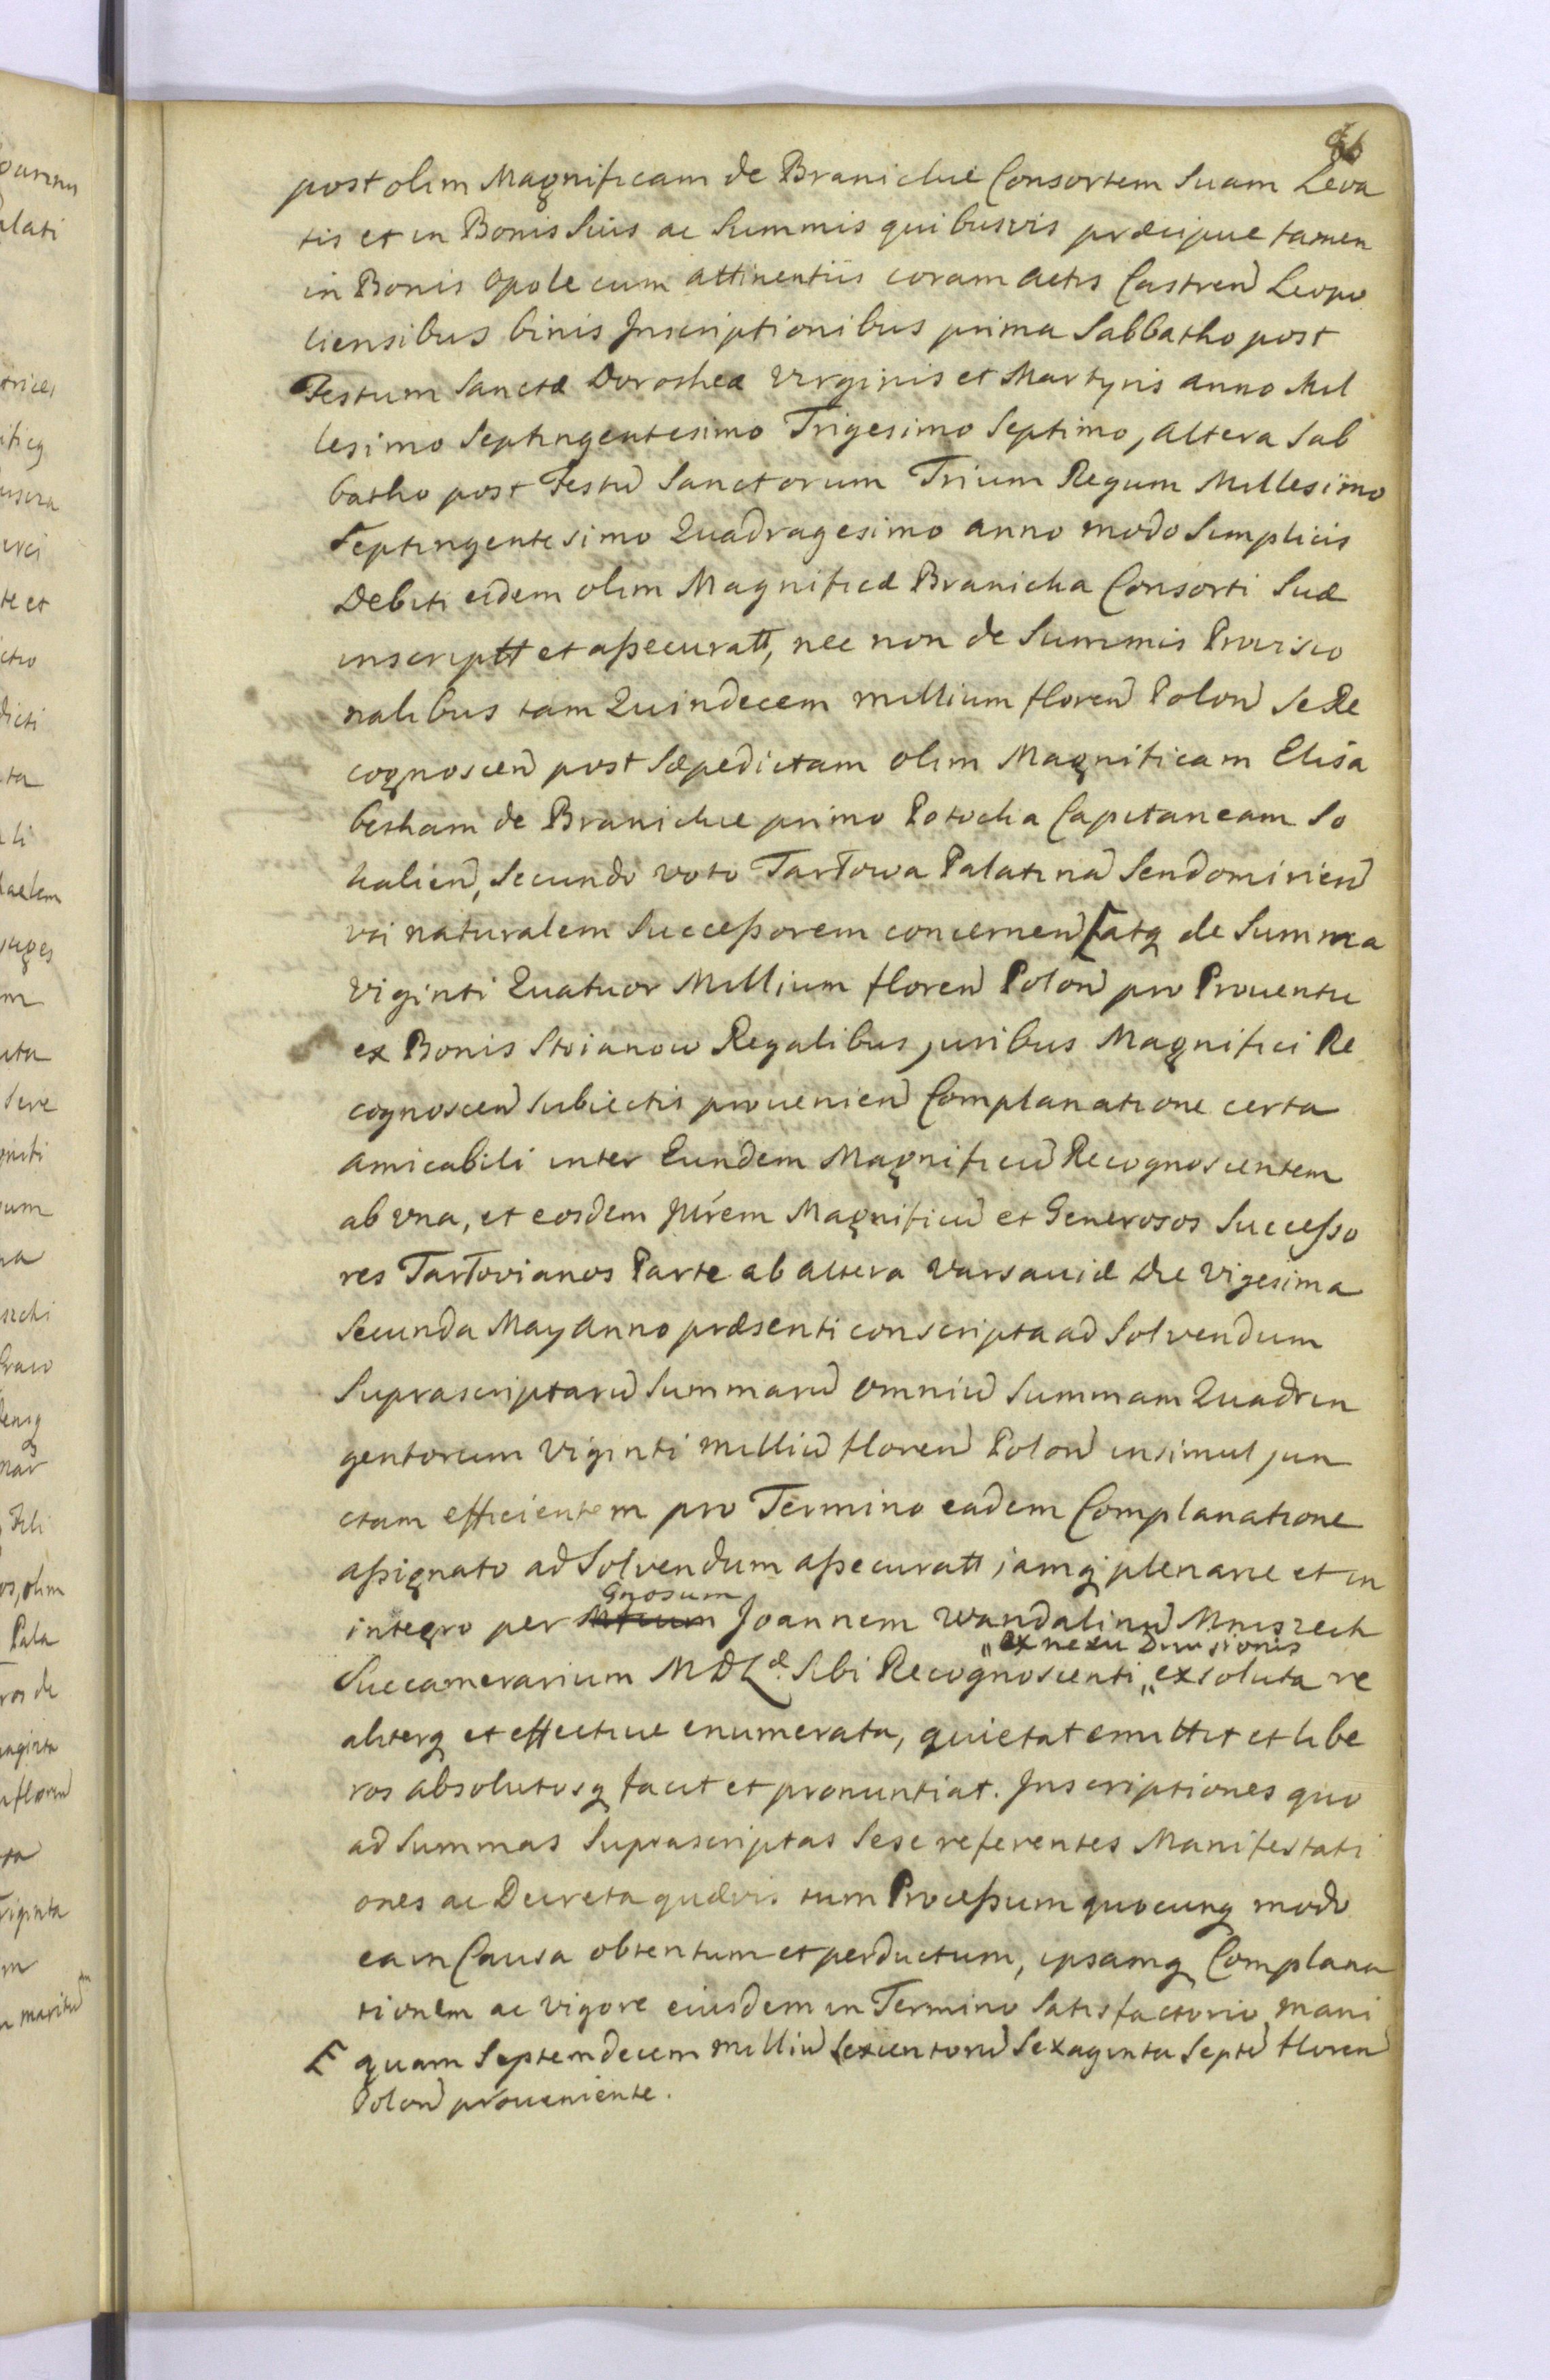 post olim Magnificam de Branickie Consortem Suam Leva
tis et in Bonis Suis ac Summis quibusvis præcipue tamen
in Bonis Opole cum attinentiis coram Actis Castren Leopo
liensibus binis Inscriptionibus prima Sabbatho post
Festum Sanctæ Dorotheæ Virginis et Martyris Anno Mil
lesimo Septingentesimo Trigesimo Septimo, altera Sab
batho post Festu Sanctorum Trium Regum Millesimo
Septingentesimo Quadragesimo anno modo Simplicis
Debiti eidem olim Magnificæ Branicka Consorti Suæ
inscriptt et assecuratt, nec non de Summis Proviso
nalibus tam Quindecem millium floren Polon Se Re
cognoscen post Sæpedictam olim Magnificam Elisa
betham de Branickie primo Potocka Capitaneam So
kalien, Secundo voto Tarłowa Palatina Sendomirien
vti naturalem Successorem concernen [atq de Summa
Viginti Quatuor Millium floren Polon pro Prouentu
ex Bonis Stoianow Regalibus juribus Magnifici Re
cognoscen subiectis prouenien Complanatione certa
amicabili inter Eundem Magnificu Recognoscentem
ab vna, et eosdem Jlrem Magnificu et Generosos Successo
res Tarłovianos Parte ab altera Varsauiæ Die Vigesima
Secunda May Anno præsenti conscripta ad Solvendum
Suprascriptaru Summaru omniu Summam Quadrin
gentorum Viginti milliu floren Polon insimul jun
ctam efficientem pro Termino eadem Complanatione
assignato ad Solvendum assecuratt jamq plenarie et in
Gnosum
integro per Mfcum Joannem Wandalinu Mniszech
"ex nexu Divisionis
Succamerarium MDLæ Sibi Recognoscenti " exsoluta re
aliterq et effective enumerata, quietat emittit et libe
ros absolutosq facit et pronuntiat. Inscriptiones quo
ad Summas Suprascriptas Sese referentes Manifestati
ones ac Decreta quævis tum Processum quocunq modo
ea in Causa obtentum et perductum, ipsamq Complana
tionem ac vigore eiusdem in Termino Satisfactorio mani
[ quam Septemdecem milliu Sexcentoru Sexaginta Septe floren
Polon proueniente.